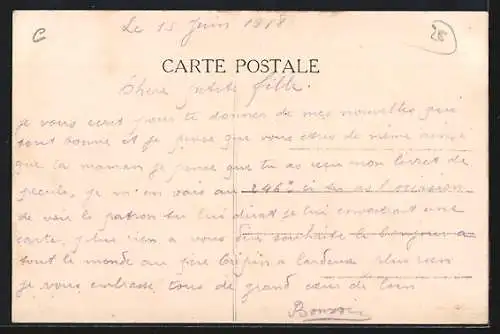 Le 15 Juin 1918
CARTE POSTALE
Chere petite fille.
je vous ecrit pour te donner de mes nouvelles qui
sont bonne et je pense que vous etes de même ainsi
que ta maman je pense que tu as reçu mon livret de
pecule, je m'en vais au 246e si tu as l'occasion
de voir le patron tu lui dirat je lui enverrait une
carte, plus rien a vous dire souhaite le bonjour a
tout le monde au père Crépin a plus rien
je vous embrasse tous de grand cœur de loin